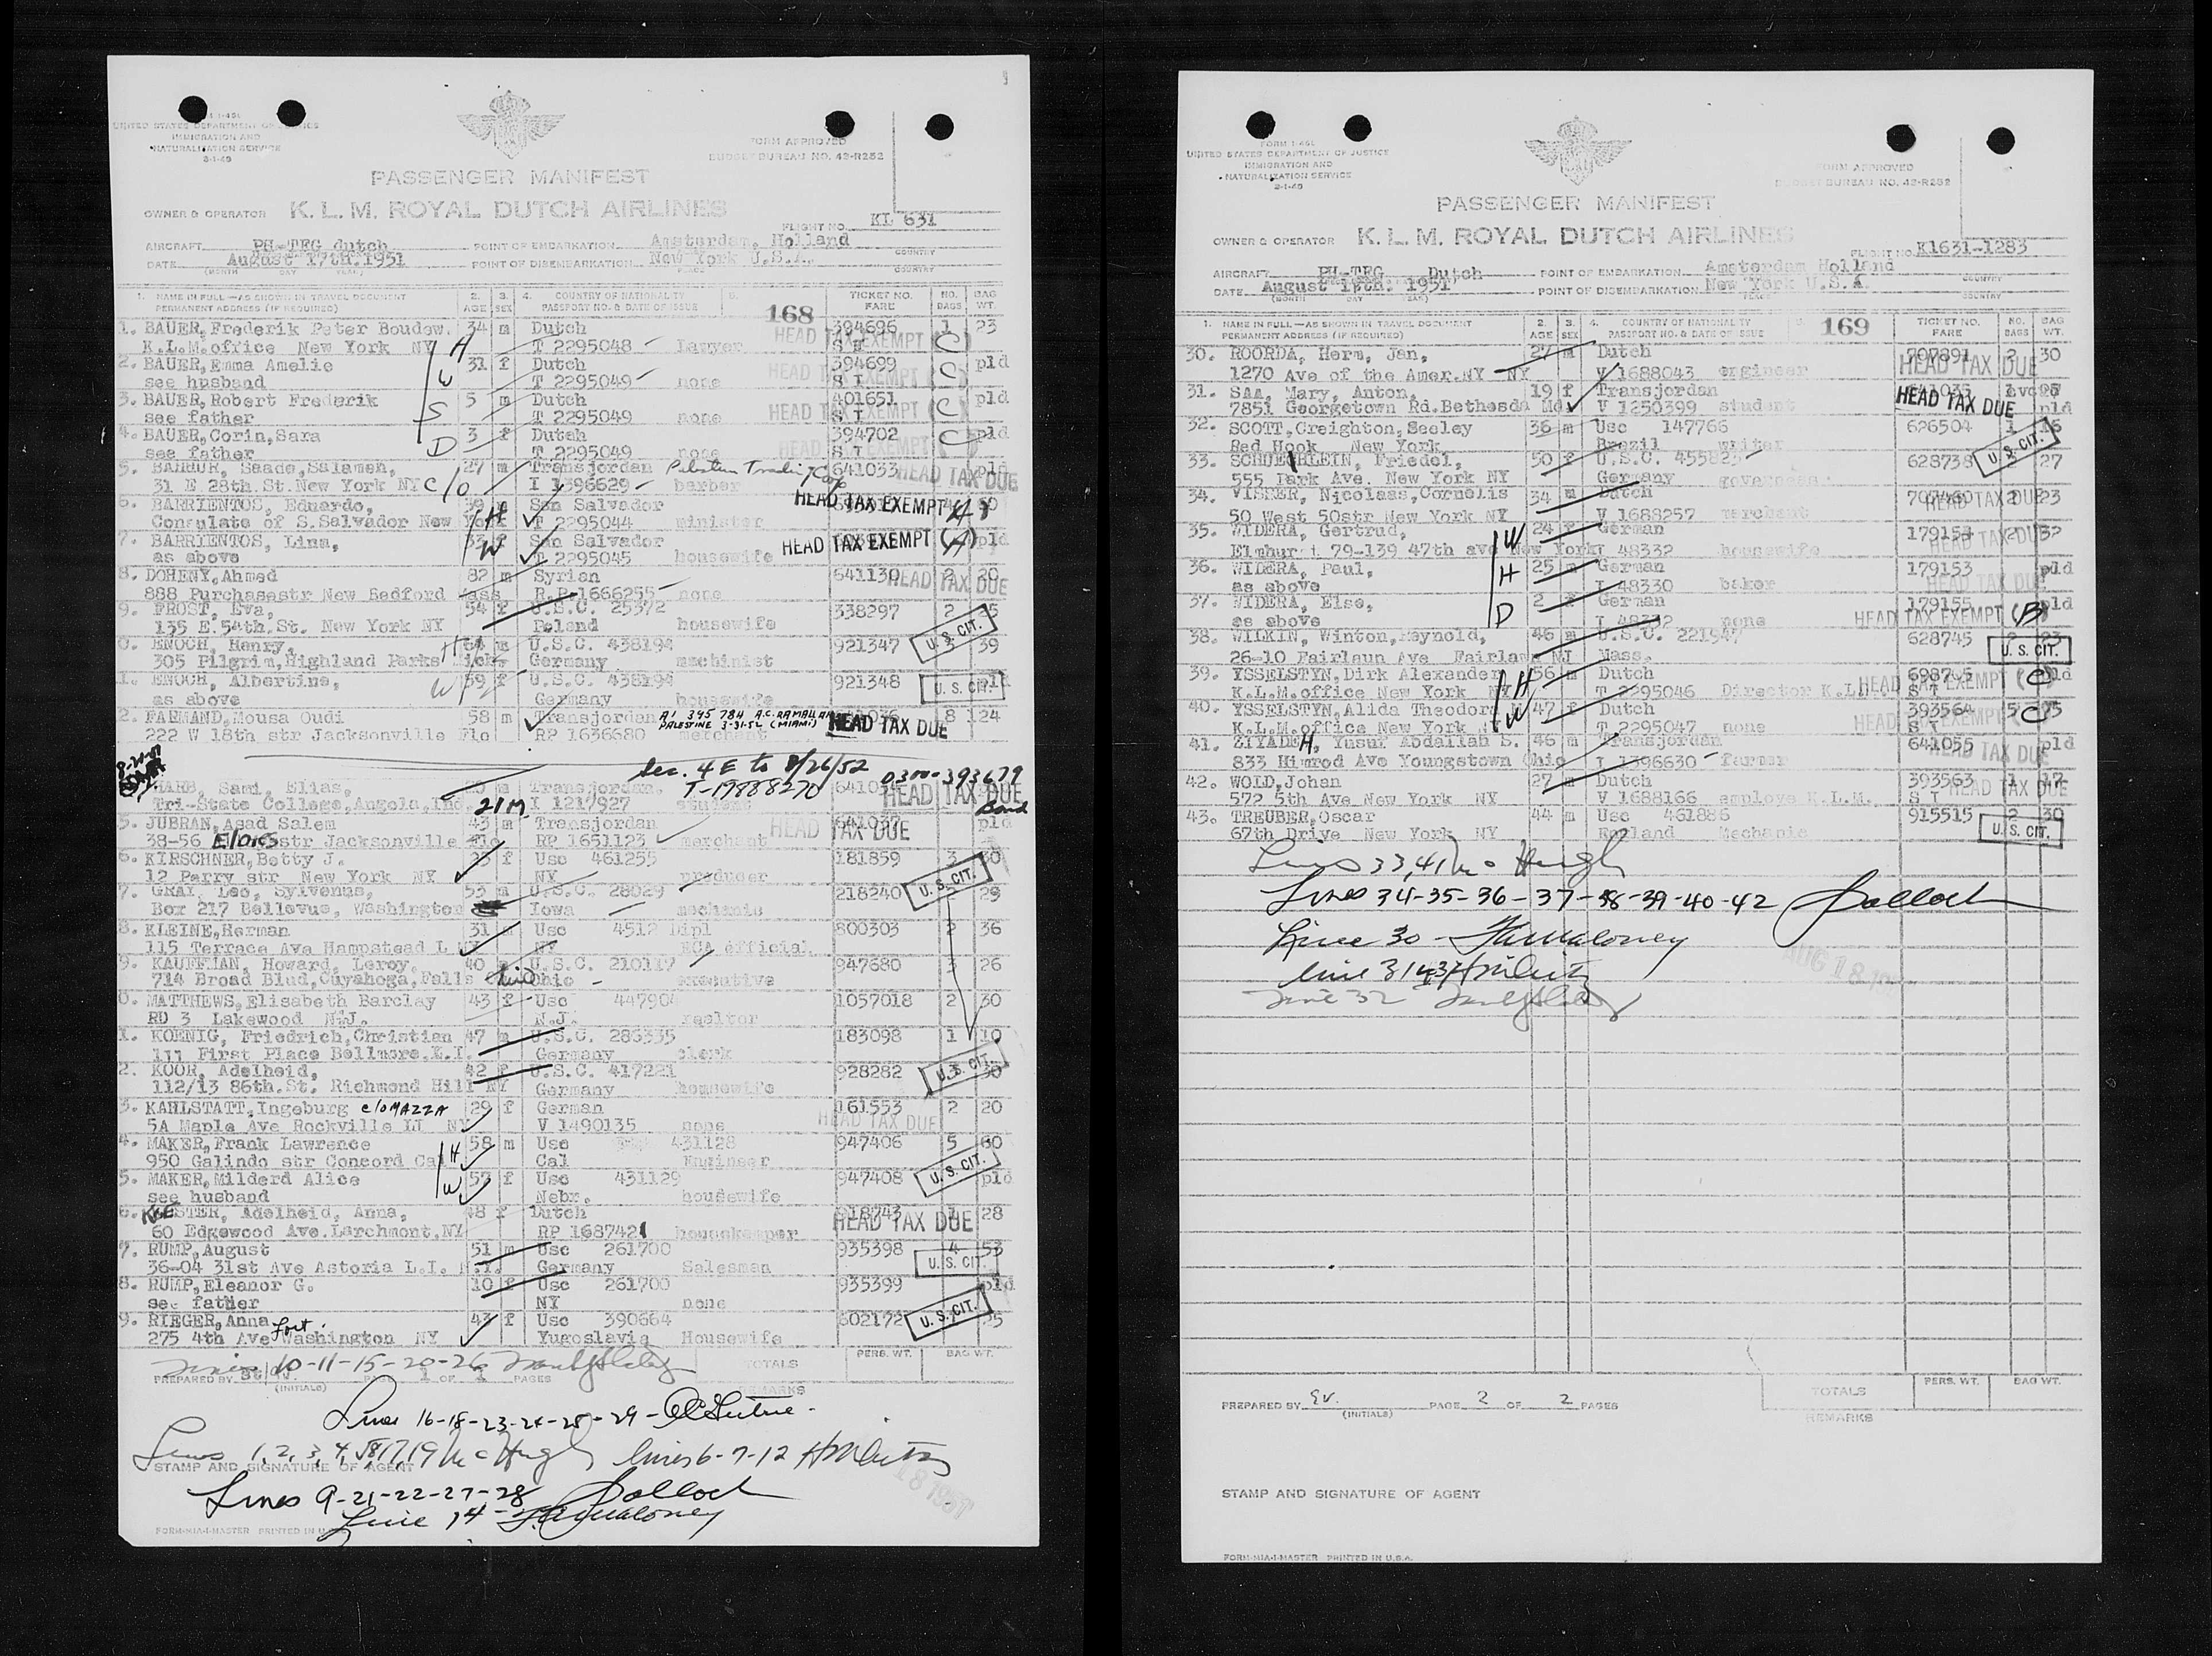 I-466
UNITED STATES DEPARTMENT OF JUSTICE
IMMIGRATION AND
NATURALIZATION SERVICE
FORM APPROVED
BUDGET BUREAU NO. 43-R252
PASSENGER MANIFEST
OWNER & OPERATOR K. L. M. ROYAL DUTCH AIRLINES
FLIGHT NO. KL 631
AIRCRAFT PH-TFG dutch POINT OF EMBARKATION Amsterdam, Holland
DATE August 17th.1951 POINT OF DISEMBARKATION New York U.S.A.
(MONTH DAY YEAR) PLACE COUNTRY
1. NAME IN FULL—AS SHOWN IN TRAVEL DOCUMENT 2. 3. 4. COUNTRY OF NATIONALITY 5. 168 TICKET NO. NO. BAG
PERMANENT ADDRESS (IF REQUIRED) AGE SEX PASSPORT NO. & DATE OF ISSUE FARE BAGS WT.
1. BAUER, Frederik Peter Boudew. 34 m Dutch 394696 1 23
K.L.M.office New York NY H T 2295048 lawyer HEAD TAX EXEMPT (C)
2. BAUER, Emma Amelie 31 f Dutch 394699 pld
see husband W T 2295049 none S I HEAD TAX EXEMPT (C)
3. BAUER, Robert Frederik 5 m Dutch 401651 pld
see father S T 2295049 none HEAD TAX EXEMPT (C)
4. BAUER, Corin, Sara 3 f Dutch 394702 pld
see father D T 2295049 none S I HEAD TAX EXEMPT (C)
5. Saade, Salameh, 27 m Transjordan 641033 pld
31 E 28th.St.New York NY C/O I 1396629 barber HEAD TAX DUE
6. BARRIENTOS, Eduardo, 39 m San Salvador
Consulate of S.Salvador New York H T 2295044 minister HEAD TAX EXEMPT
7. BARRIENTOS, Lina, 33 f San Salvador pld
as above W T 2295045 housewife HEAD TAX EXEMPT (A)
8. DOHENY, Ahmed 82 m Syrian 641130
888 Purchasestr New Bedford Mass R.P.1666255 none HEAD TAX DUE
9. FROST, Eva, 54 f U.S.C. 25372 338297 2
135 E.54th.St. New York NY Poland housewife U. S. CIT.
0. ENOCH, Henry, H 64 m U.S.C. 438194 921347 3 39
305 Pilgrim, Highland Parks Mich. Germany machinist
1. ENOCH, Albertine, W 59 f U.S.C. 438194 921348
as above Germany housewife U. S. CIT.
2. FARMAND, Mousa Oudi 58 m Transjordan A1 395 784 A.C. RAMALLAH 8 124
222 W 18th str Jacksonville Flo RP 1636680 merchant PALESTINE 3-31-52 (MIAMI) HEAD TAX DUE
Sec. 4 E to 8/26/52 0300-393679
HARB, Sami, Elias, m Transjordan. T-19888270
Tri-State College, Angola, Ind. 21 M. I 1217927 student HEAD TAX DUE Bond
5. JUBRAN, Asad Salem 43 m Transjordan 641037 pld
38-56 str Jacksonville Flo RP 1651123 merchant HEAD TAX DUE
6. KIRSCHNER, Betty J. f Usc 461255 181859 3
12 Perry str New York NY NY producer U. S. CIT.
7. GRAY, Leo, Sylvenus, 53 m U.S.C. 28029 218240 2 29
Box 217 Bellevue, Washington Iowa mechanic
8. KLEINE, Herman 31 Usc 4512 Dipl 800303 2 36
115 Terrace Ava Hampstead L NY ECA official
9. KAUFFMAN, Howard, Leroy, 40 m U.S.C. 210117 947680 3 26
714 Broad Blud, Cuyahoga, Falls Ohio executive
0. MATTHEWS, Elisabeth Barclay 43 f Usc 447904 1057018 2 30
RD 3 Lakewood N.J. N.J. realtor
1. KOENIG, Friedrich, Christian 47 m U.S.C. 286335 183098 1 10
111 First Place Bellmore.L.I. Germany clerk
2. KOOR, Adelheid, 42 f U.S.C. 417221 928282 30
112/13 86th.St. Richmond Hill NY Germany housewife U. S. CIT.
3. KAHLSTATT, Ingeburg c/o MAZZA 29 f German 161553 2 20
5A Maple Ave Rockville LI NY V 1490135 none HEAD TAX DUE
4. MAKER, Frank Lawrence 58 m Usc 431128 947406 5 60
950 Galindo str Concord Cal H Cal Engineer
5. MAKER, Milderd Alice 57 f Usc 431129 947408 pld
see husband W Nebr. housewife U. S. CIT.
6. KOESTER, Adelheid, Anna, 48 f Dutch 28
60 Edgewood Ave.Larchmont, NY RP 1687421 housekeeper HEAD TAX DUE
7. RUMP, August 51 m Usc 261700 935398 4 53
36-04 31st Ave Astoria L.I. N.Y. Germany Salesman U. S. CIT.
8. RUMP, Eleanor G. 10 f Usc 261700 935399 pld
see father NY none
9. RIEGER, Anna 43 f Usc 390664 602172
275 4th Ave Fort. Washington NY Yugoslavia Housewife U. S. CIT.
10-11-15-20-26
PREPARED BY (INITIALS) PAGE 1 OF PAGES TOTALS PERS. WT. BAG WT.
REMARKS
Lines 16-18-23-24-25-29-
Lines 1,2,3,4, 17,19 McHugh lines 6-7-12
STAMP AND SIGNATURE OF AGENT
Lines 9-21-22-27-28
Line 14- Maloney
FORM-MIA-I-MASTER PRINTED IN U.S.A.
FORM I-466
UNITED STATES DEPARTMENT OF JUSTICE
IMMIGRATION AND
NATURALIZATION SERVICE
FORM APPROVED
BUDGET BUREAU NO. 43-R252
PASSENGER MANIFEST
OWNER & OPERATOR K. L. M. ROYAL DUTCH AIRLINES
FLIGHT NO. Kl631-1283
AIRCRAFT PH-TFG Dutch POINT OF EMBARKATION Amsterdam Holland
DATE August 1951 POINT OF DISEMBARKATION New York U.S.A.
(MONTH DAY YEAR) PLACE COUNTRY
1. NAME IN FULL—AS SHOWN IN TRAVEL DOCUMENT 2. 3. 4. COUNTRY OF NATIONALITY 169 TICKET NO. NO. BAG
PERMANENT ADDRESS (IF REQUIRED) AGE SEX PASSPORT NO. & DATE OF ISSUE FARE BAGS WT.
30. ROORDA, Herm, Jan, 27 m Dutch 707891 2 30
1270 Ave of the Amer.NY NY V 1688043 engineer HEAD TAX DUE
31. SAA, Mary, Anton, 19 f Transjordan
7851 Georgetown Rd.Bethesda Md V 1250399 student HEAD TAX DUE pld
32. SCOTT, Creighton, Seeley 36 m Usc 147766 626504 1 16
Red Hook New York Brazil writer U. S. CIT.
33. Friedel, 50 f U.S.C. 455825 628738 27
555 Park Ave. New York NY Germany governess
34. VISSER, Nicolaas, Cornelis 34 m Dutch 23
50 West 50str New York NY V 1688257 merchant HEAD TAX DUE
35. WIDERA, Gertrud, W 24 f German 179154 2 32
Elmhurst 79-139 47th ave New York I 48332 housewife HEAD TAX DUE
36. WIDERA, Paul, H 25 m German 179153 pld
as above I 48330 baker HEAD TAX DUE
37. WIDERA, Else, D 2 f German 179155 pld
as above I 48332 none HEAD TAX EXEMPT (B)
38. WILKIN, Winton, Reynold, 46 m U.S.C. 221947 628745 2 23
26-10 Fairlaun Ave Fairlawn NJ Mass. U. S. CIT.
39. YSSELSTYN, Dirk Alexander H 56 m Dutch pld
K.L.M.office New York NY T 2295046 Director K.L.M. HEAD TAX EXEMPT (C)
40. YSSELSTYN, Alida Theodora W 47 f Dutch 393564 5
K.L.M.office New York T 2295047 none S I HEAD TAX EXEMPT (C)
41. ZIYADEH, Yusuf Abdallah S. 46 m Transjordan 641055 pld
833 Himrod Ave Youngstown Ohio I 1396630 farmer HEAD TAX DUE
42. WOLD, Johan 27 m Dutch 393563 1 17
572 5th Ave New York NY V 1688166 employe K.L.M. S I HEAD TAX DUE
43. TREUBER, Oscar 44 m Usc 461886 915515 2 30
67th Drive New York NY England Mechanic U. S. CIT.
Lines 33,41 McHugh
Lines 34-35-36-37-38-39-40-42
Line 30 - Maloney
line 31 43
Line 32
AUG 18
PREPARED BY (INITIALS) PAGE 2 OF 2 PAGES TOTALS PERS. WT. BAG WT.
REMARKS
STAMP AND SIGNATURE OF AGENT
FORM-MIA-I-MASTER PRINTED IN U.S.A.